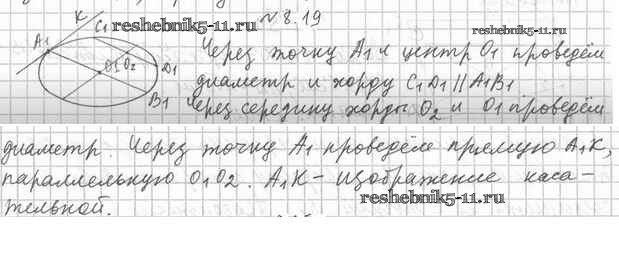 №8.19
reshebnik5-11.ru
K
C1
A1
O1 O2
D1
B1
Через точку A1 и центр O1 проведём
диаметр и хорду C1D1 || A1B1
Через середину хорды O2 и O1 проведём
диаметр. Через точку A1 проведём прямую A1K,
параллельную O1O2. A1K - изображение каса-
тельной.
reshebnik5-11.ru